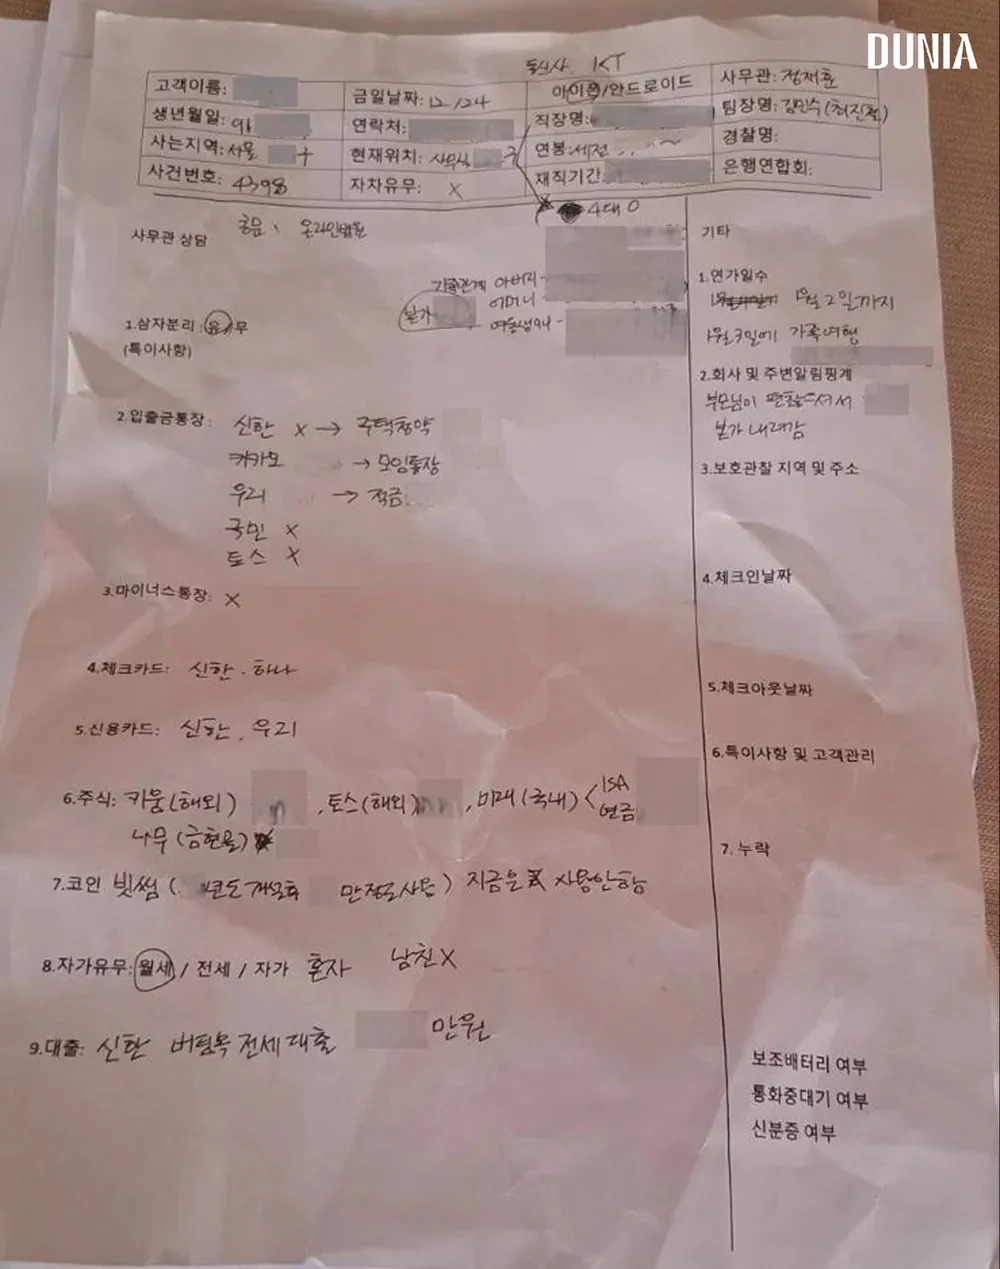 DUNIA
통신사 KT
고객이름: 금일날짜: 12/24 아이폰/안드로이드 사무관: 정재훈
생년월일: 91 연락처: 직장명: 팀장명: 김민수(최진철)
사는지역: 서울 구 현재위치: 사무실 구 연봉: 세전 ~ 경찰명:
사건번호: 4398 자차유무: X 재직기간: 은행연합회:
4대 O
사무관 상담 공문: 온라인발
가족관계 아버지 -
본가 어머니 -
여동생
1.삼자분리: 유/무
(특이사항)
2.입출금통장: 신한 X → 주택청약
카카오 → 모임통장
우리 → 적금
국민 X
토스 X
3.마이너스통장: X
4.체크카드: 신한. 하나
5.신용카드: 신한, 우리
6.주식: 키움(해외) , 토스(해외) , 미래(국내) < ISA
연금
나무(금현물)
7.코인 빗썸 ( 년도 개설후 만정도사용) 지금은 사용안함
8.자가유무: 월세 / 전세 / 자가 혼자 남친X
9.대출: 신한 버팀목 전세대출 만원
기타
1.연가일수
1월2일까지
1월3일에 가족여행
2.회사 및 주변알림핑계
부모님이 편찮으셔서
본가 내려감
3.보호관찰 지역 및 주소
4.체크인날짜
5.체크아웃날짜
6.특이사항 및 고객관리
7.누락
보조배터리 여부
통화중대기 여부
신분증 여부